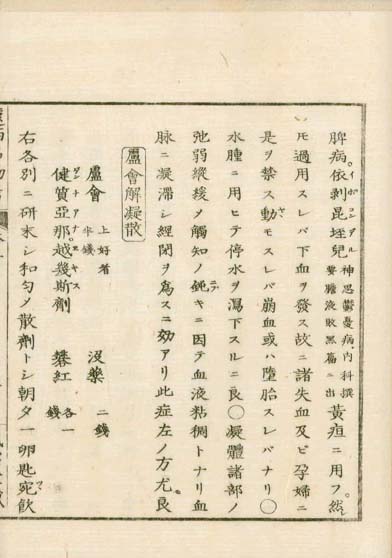 脾病。依剥昆垤児イポコンデル神思鬱憂病内科撰要膽液敗黒篇ニ出黄疸ニ用フ。然
𪜈過用スレバ下血ヲ發ス故ニ諸失血及ビ孕婦ニ
是ヲ禁ス動モスレバ崩血或ハ墮胎スレバナリ〇
水腫ニ用ヒテ停水ヲ瀉下スルニ良〇凝體諸部ノ
弛弱縱緩メ觸知ノ鈍キニ因テ血液粘稠トナリ血
脉ニ凝滞シ經閉ヲ爲スニ効アリ此症左ノ方尤良
蘆會解凝散
蘆會 上好者 半錢 没藥 二錢
健質亞那越幾斯劑ゲンチアナエキス 各一錢
右各別ニ研末シ和匀メ散劑トシ朝夕一卵匙宛飲